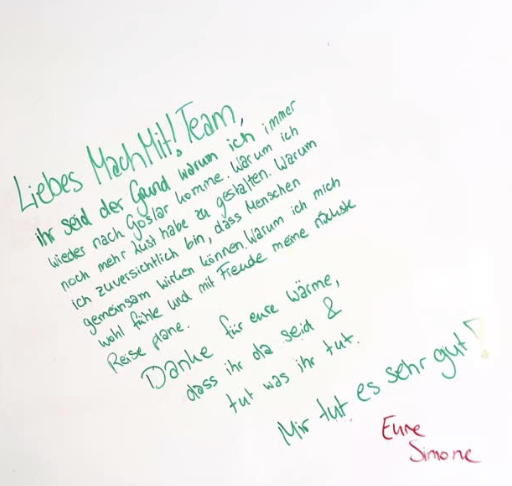 Liebes MachMit! Team,
ihr seid der Grund, warum ich immer
wieder nach Goslar komme. Warum ich
noch mehr Lust habe zu gestalten. Warum
ich zuversichtlich bin, dass Menschen
gemeinsam wirken können. Warum ich mich
wohl fühle und mit Freude meine nächste
Reise plane.
Danke für eure Wärme,
dass ihr da seid &
tut was ihr tut.
Mir tut es sehr gut!
Eure
Simone